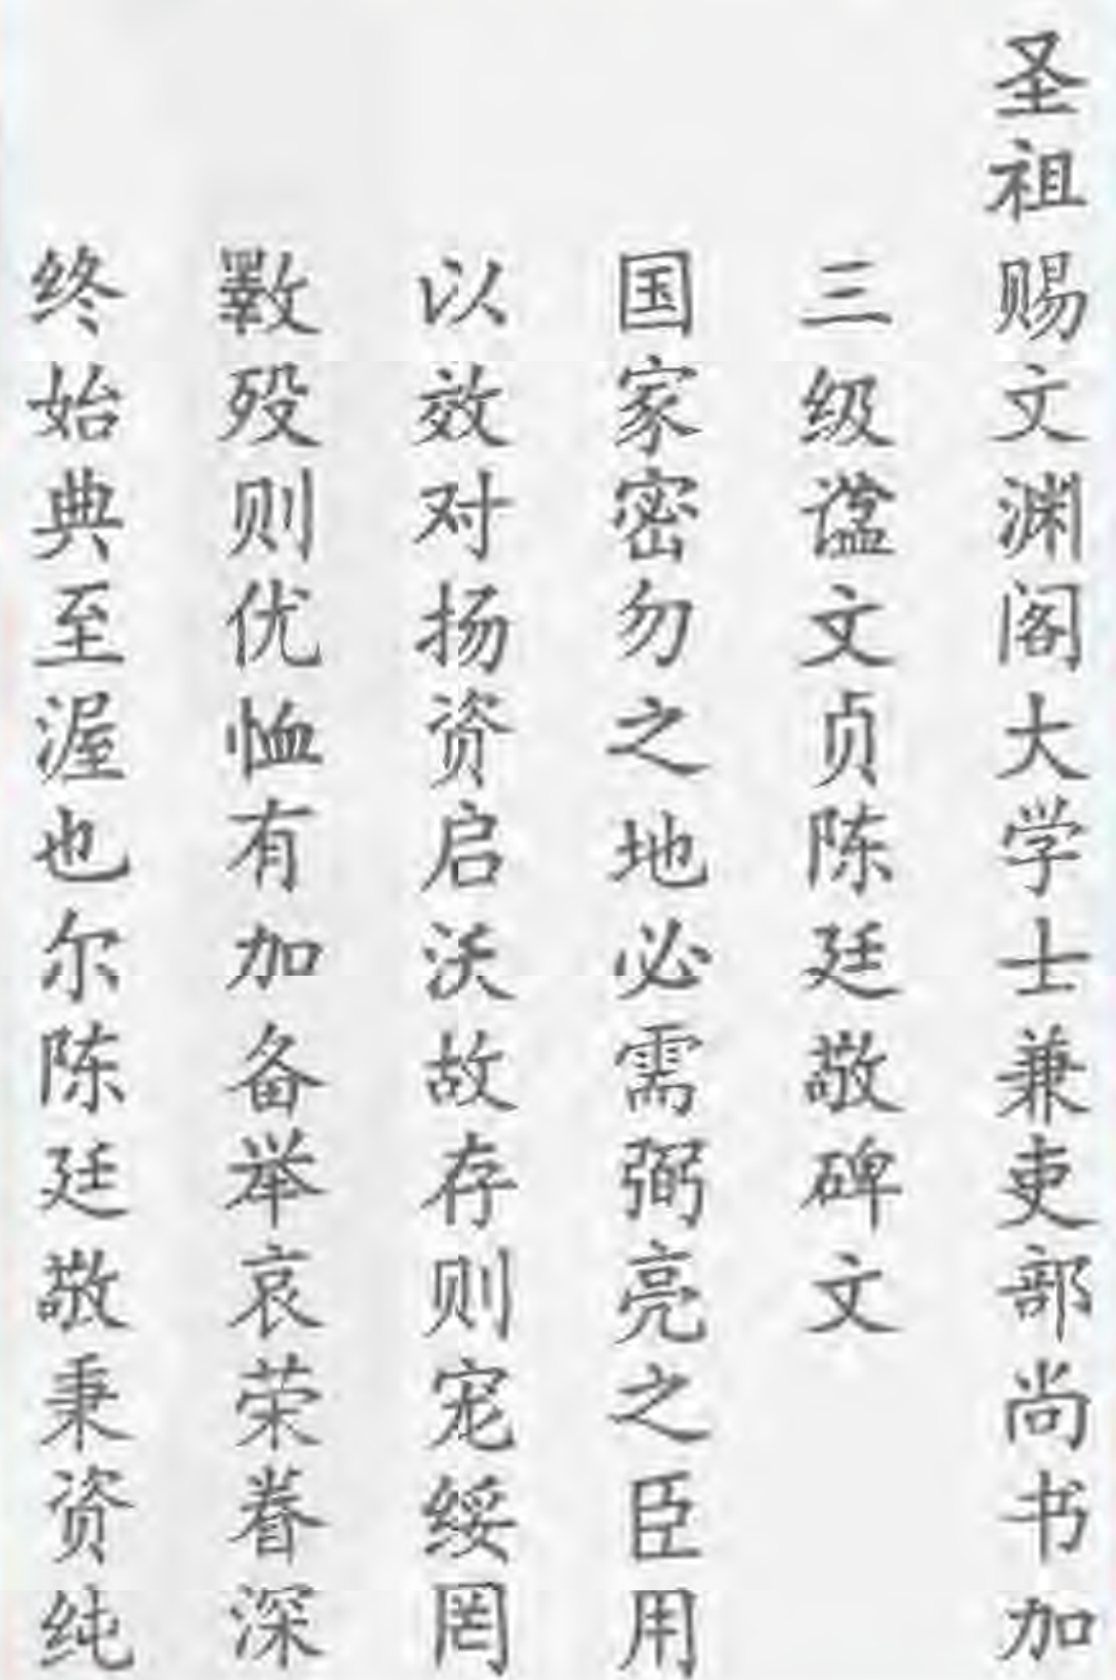 圣祖赐文渊阁大学士兼吏部尚书加
三级谥文贞陈廷敬碑文
国家密勿之地必需弼亮之臣用
以效对扬资启沃故存则宠绥罔
斁殁则优恤有加备举哀荣眷深
终始典至渥也尔陈廷敬秉资纯